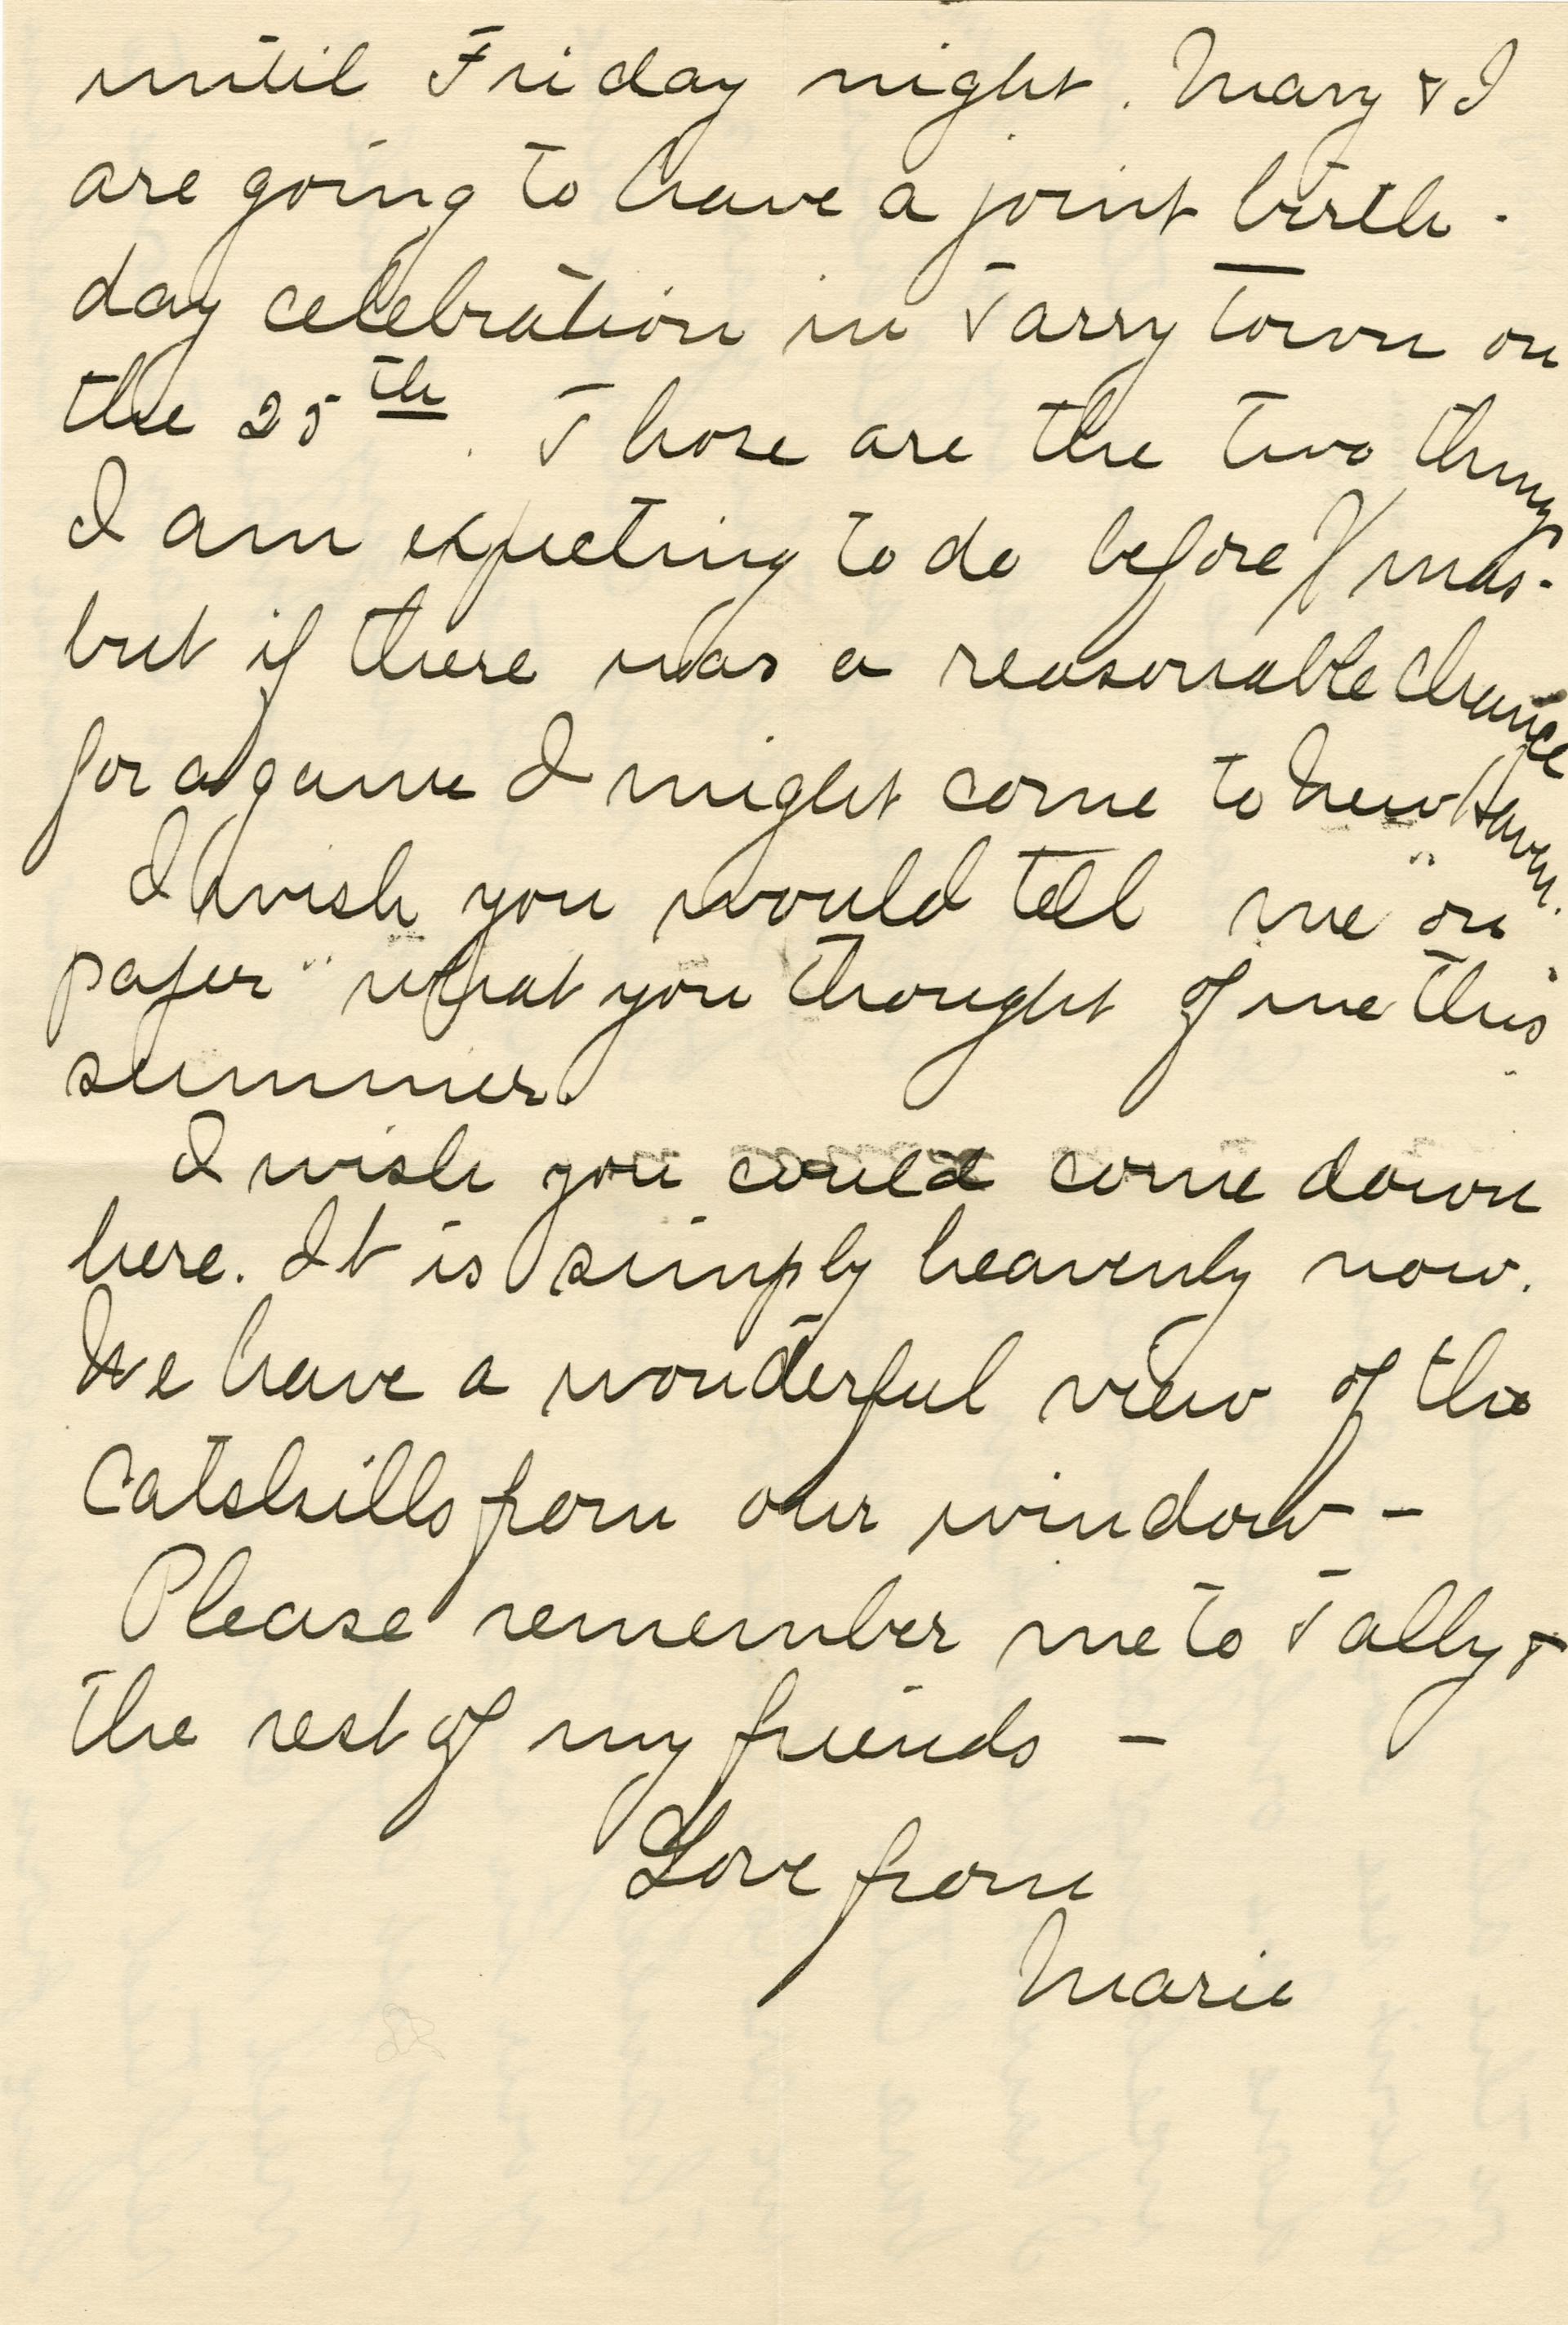 until Friday night. Mary & I
are going to have a joint birth-
day celebration in Tarrytown on
the 25th. Those are the two things
I am expecting to do before Xmas-
but if there was a reasonable chance
for a game I might come to New Haven.
I wish you would tell me "on
paper" what you thought of me this
summer.
I wish you could come down
here. It is simply heavenly now.
We have a wonderful view of the
Catskills from our window-
Please remember me to Tally &
the rest of my friends -
Love from
Marie